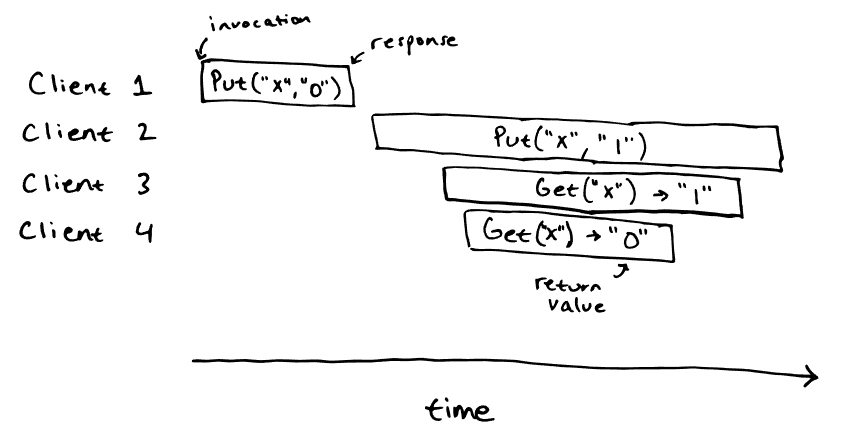 invocation
response
Client 1 Put("x","0")
Client 2 Put("x","1")
Client 3 Get("x") → "1"
Client 4 Get("x") → "0"
return
value
time